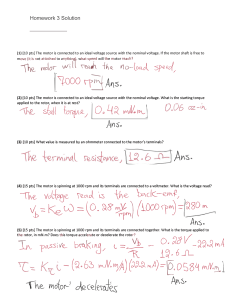 Homework 3 Solution
[1] [10 pts] The motor is connected to an ideal voltage source with the nominal voltage. If the motor shaft is free to
move (it is not attached to anything), what speed will the motor reach?
The motor will reach the no-load speed,
7000 rpm Ans.
[2] [10 pts] The motor is connected to an ideal voltage source with the nominal voltage. What is the starting torque
applied to the rotor, when it is at rest?
The stall torque, 0.42 mNm 0.06 oz-in
Ans.
[3] [10 pts] What value is measured by an ohmmeter connected to the motor's terminals?
The terminal resistance, 12.6 Ω Ans.
[4] [15 pts] The motor is spinning at 1000 rpm and its terminals are connected to a voltmeter. What is the voltage read?
The voltage read is the back-emf,
Vb = Ke ω = (0.28 mV/rpm) (1000 rpm) = 280 m
Ans.
[5] [15 pts] The motor is spinning at 1000 rpm and its terminals are connected together. What is the torque applied to
the rotor, in mNm? Does this torque accelerate or decelerate the rotor?
In passive braking, i = Vb/R = 0.28V/12.6 Ω = 22.2 mA
τ = Kτ i = (2.63 mNm/A) (22.2 mA) = 0.0584 mNm
Ans.
The motor decelerates